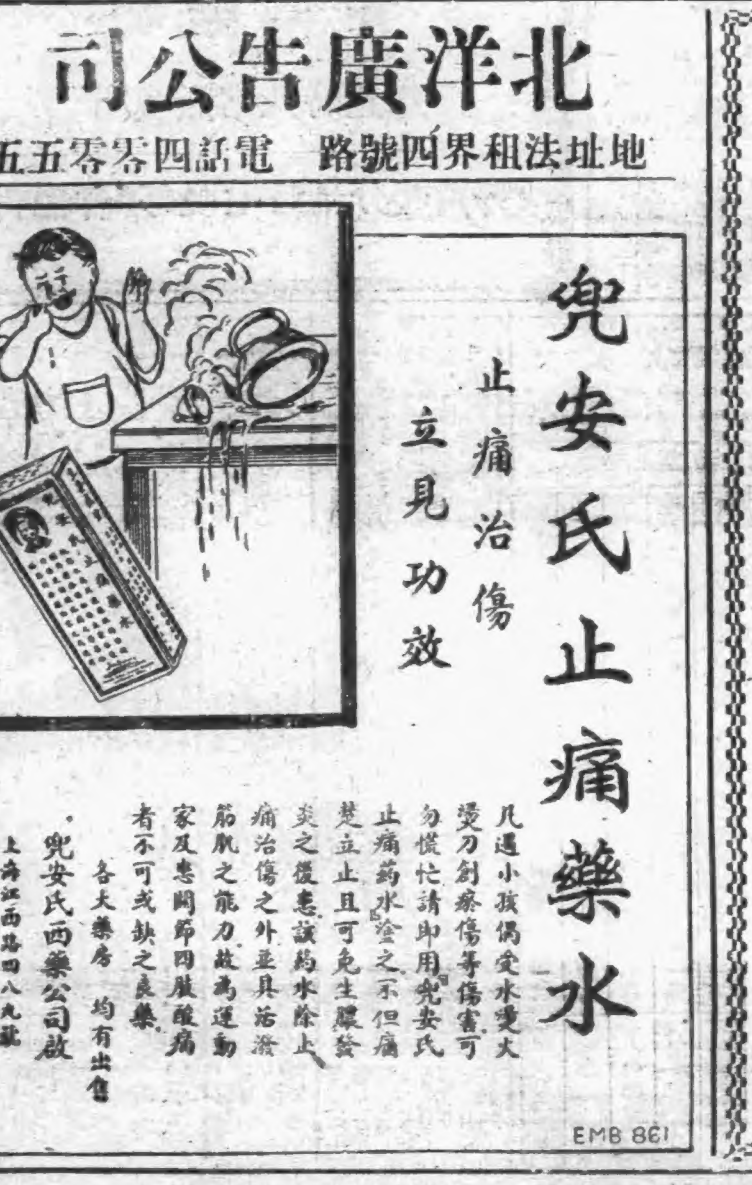 北洋廣告公司
地址法租界四號路　電話四零零五五
兜安氏止痛藥水
止痛治傷
立見功效
凡遇小孩偶受水燙火
燙刀創瘀傷等傷害可
勿慌忙請即用『兜安氏
止痛药水』塗之不但痛
楚立止且可免生膿發
炎之後患該药水除止
痛治傷之外並具活潑
筋肌之能力故為運動
家及患關節四肢酸痛
者不可或缺之良藥
各大藥房　均有出售
兜安氏西藥公司啟
上海江西路四八九號
EMB 861